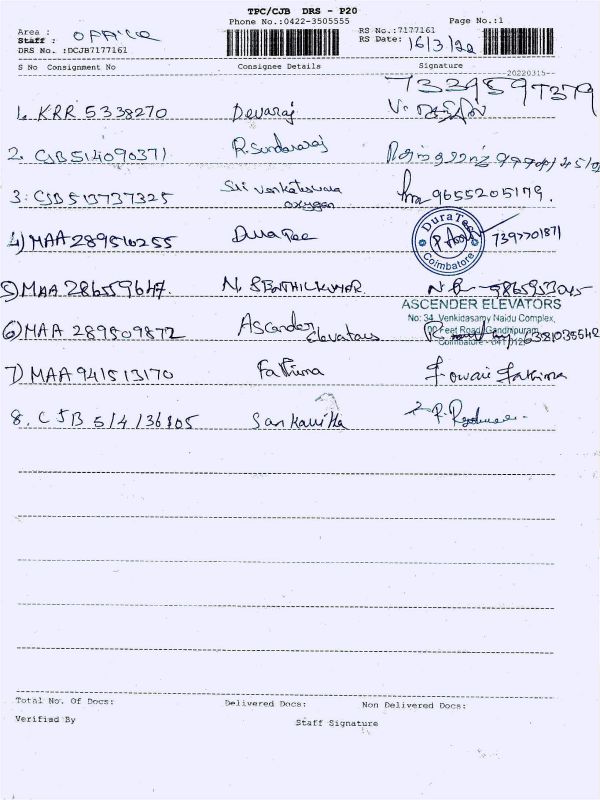 TPC/CJB DRS - P20
Phone No.:0422-3505555 Page No.:1
Area : OFFICE
Staff :
DRS No. :DCJB7177161
RS No.:7177161
RS Date: 16/3/22
S No Consignment No Consignee Details Signature
20220315
7339597379
1. KRR 5338270 Devaraj
2. CJB514090371 R.Sundararaj
3. CJB513737325 Sri Venkateswara oxygen 9655205179.
4) MAA 289510255 Dura Tec 7397701871
DuraTec
Coimbatore
5) MAA 286559647. N. SENTHILKUMAR.
ASCENDER ELEVATORS
No: 34, Venkidasamy Naidu Complex,
100 Feet Road, Gandhipuram,
Coimbatore - 641 012
6) MAA 289509872 Ascender Elevators 6381035642
7) MAA 941513170 Fathima Fathima
8. CJB 514136805
Total No. Of Docs: Delivered Docs: Non Delivered Docs:
Verified By Staff Signature